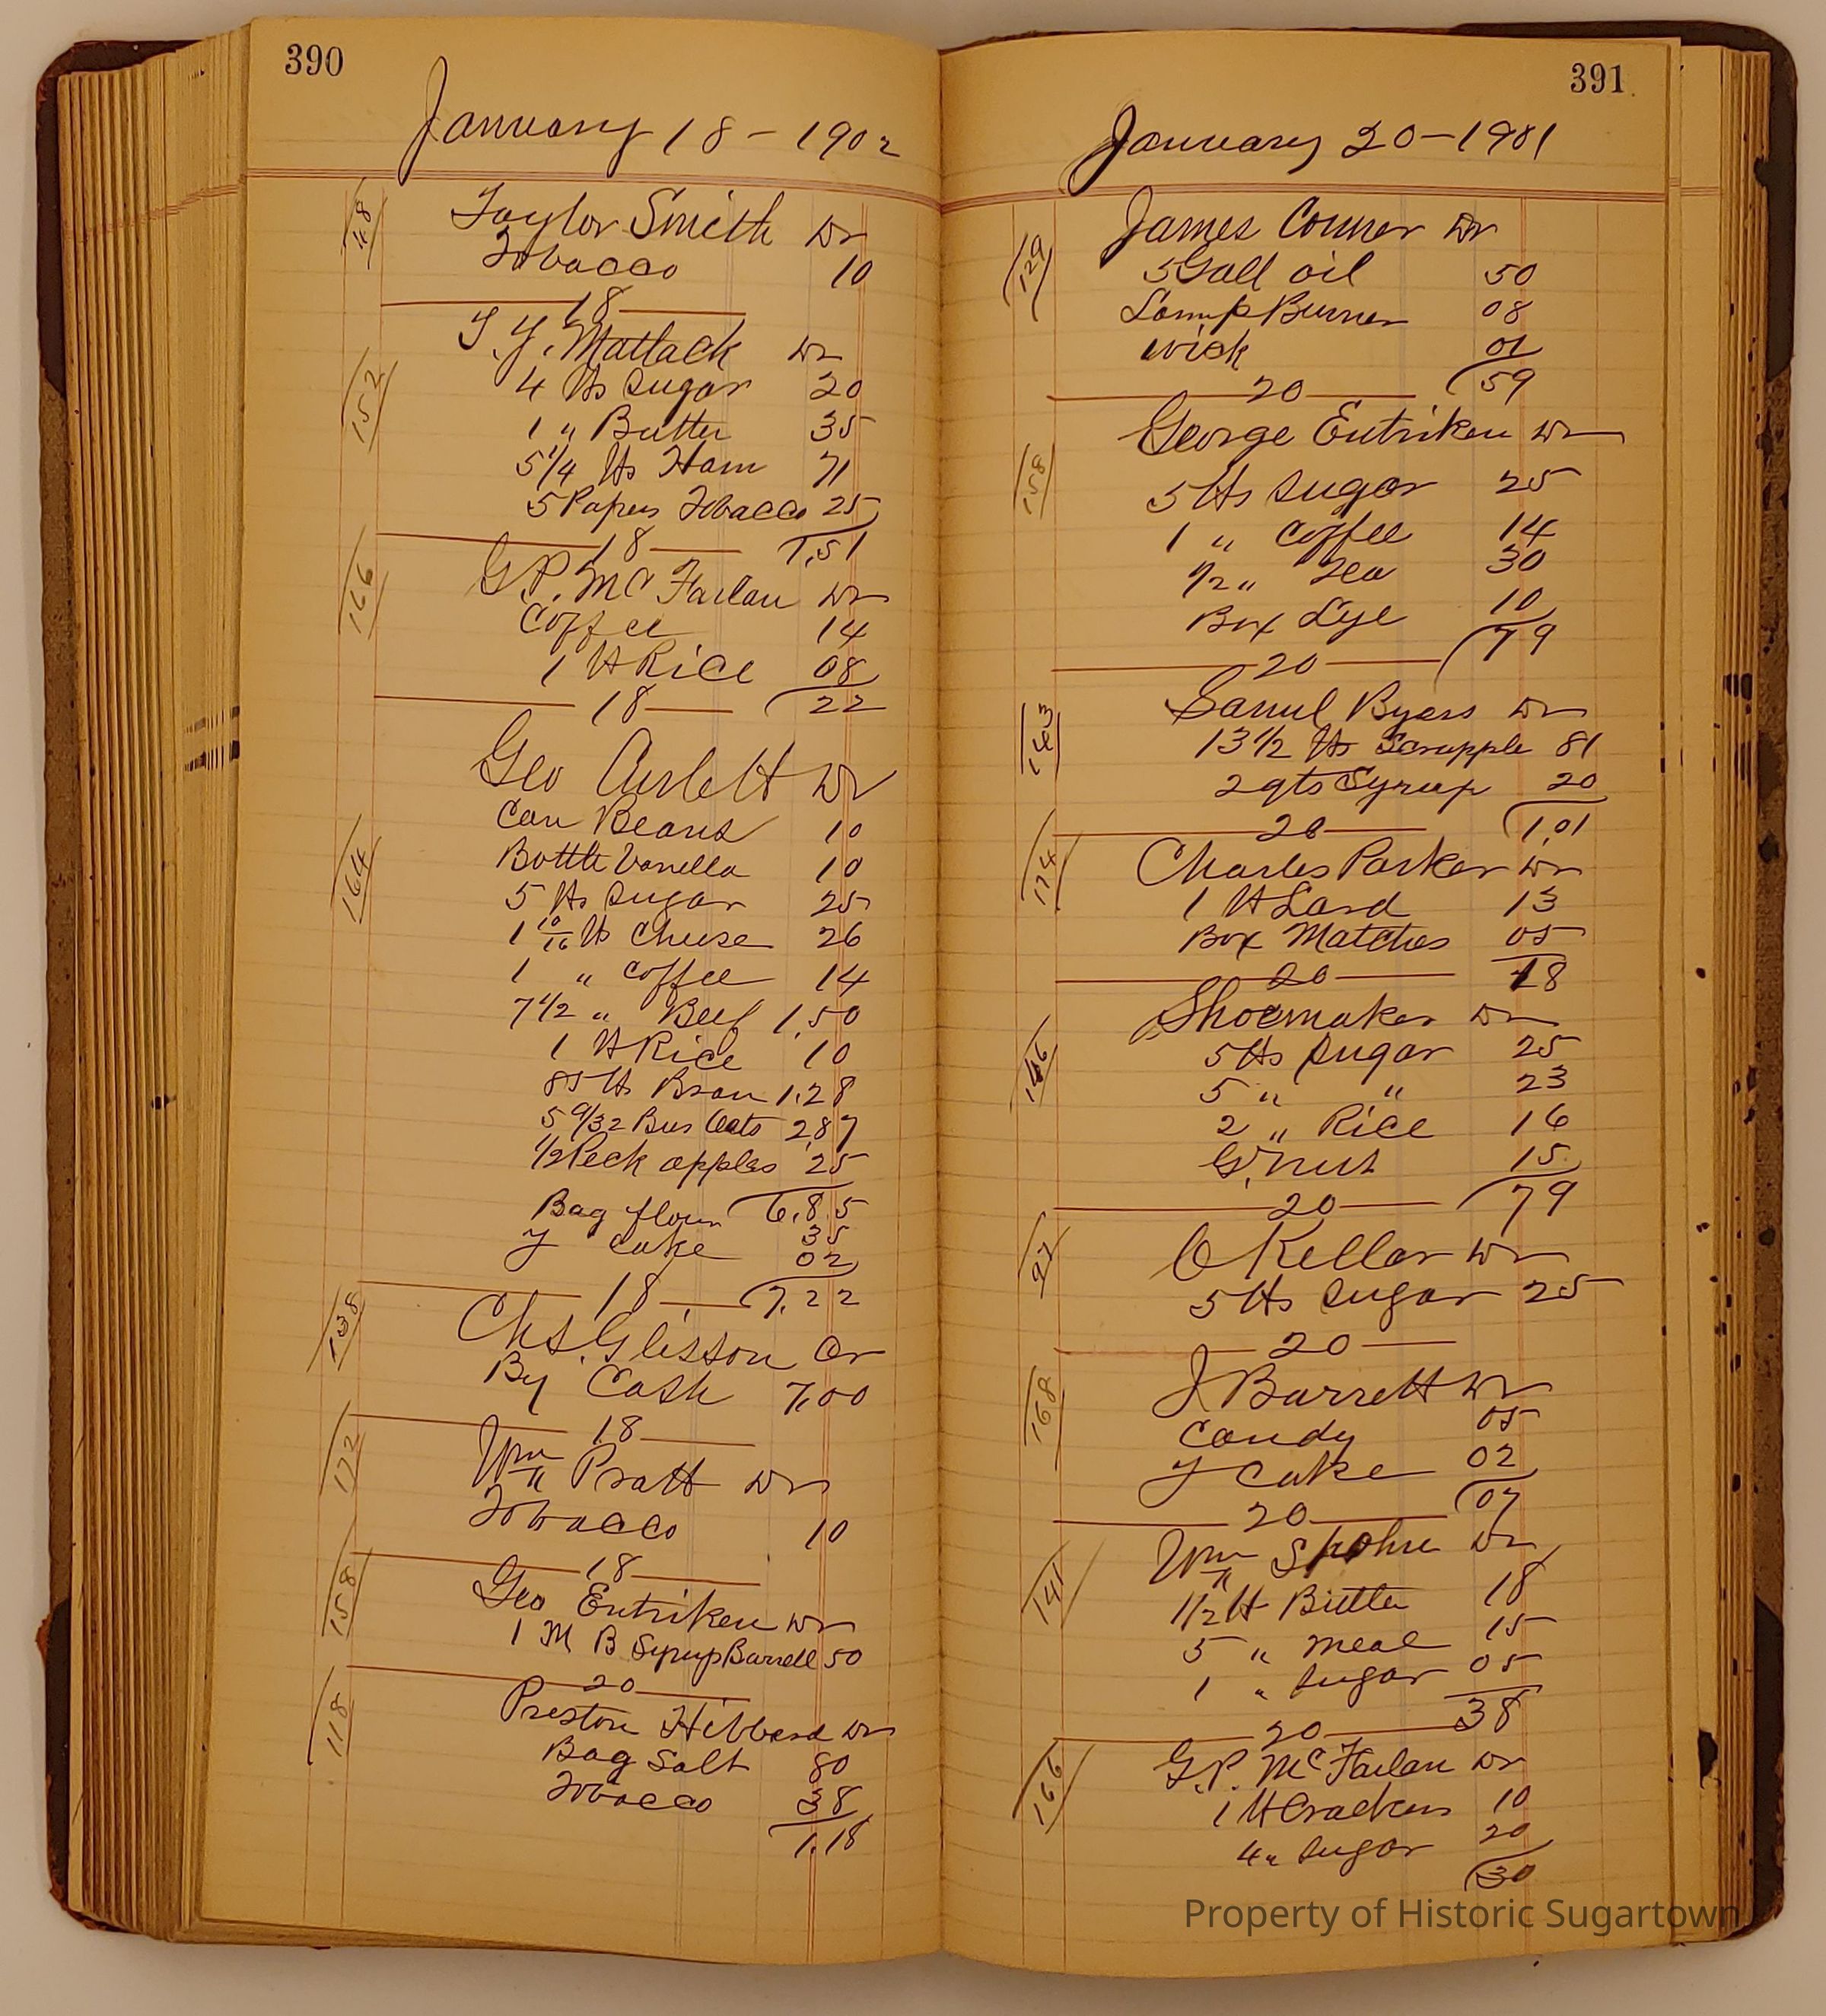 390
January 18 - 1902
48
Taylor Smith Dr
Tobacco 10
18
T. Y. Matlack Dr
152
4 lbs Sugar 20
1 " Butter 35
5 1/4 lbs Ham 71
5 Papers Tobacco 25
18 1,51
166
G. P. McFarlan Dr
Coffee 14
1 lb Rice 08
18 22
Geo Dr
Can Beans 10
164
Bottle Vanella 10
5 lbs Sugar 25
1 10/16 lb Cheese 26
1 " Coffee 14
7 1/2 " Beef 1,50
1 lb Rice 10
85 lbs Bran 1.28
5 9/32 Bus Oats 2,87
1/2 Peck apples 25
6,85
Bag flour 35
Y Cake 02
18 7.22
138
Chs. Glisson Cr
By Cash 7,00
18
172
Wm Pratt Dr
Tobacco 10
18
158
Geo Entriken Dr
1 M B Syrup Barrell 50
20
118
Preston Hibberd Dr
Bag Salt 80
Tobacco 38
1.18
391
January 20 - 1901
James Conner Dr
129
5 Gall oil 50
Lamp Burner 08
Wick 01
20 59
George Entriken Dr
158
5 lbs Sugar 25
1 " Coffee 14
1/2 " Tea 30
Box Lye 10
20 79
163
Samul Byers Dr
13 1/2 lbs Scrapple 81
2 qts Syrup 20
20 1,01
174
Charles Parker Dr
1 lb Lard 13
Box Matches 05
20 18
Shoemaker Dr
146
5 lbs Sugar 25
5 " " 23
2 " Rice 16
G. nut 15
20 79
97
O Kellar Dr
5 lbs Sugar 25
20
168
J Barrett Dr
Candy 05
Y Cake 02
20 07
141
Wm Spohn Dr
1/2 lb Butter 18
5 " meal 15
1 " Sugar 05
20 38
166
G. P. McFarlan Dr
1 lb Crackers 10
4 " Sugar 20
30
Property of Historic Sugartown